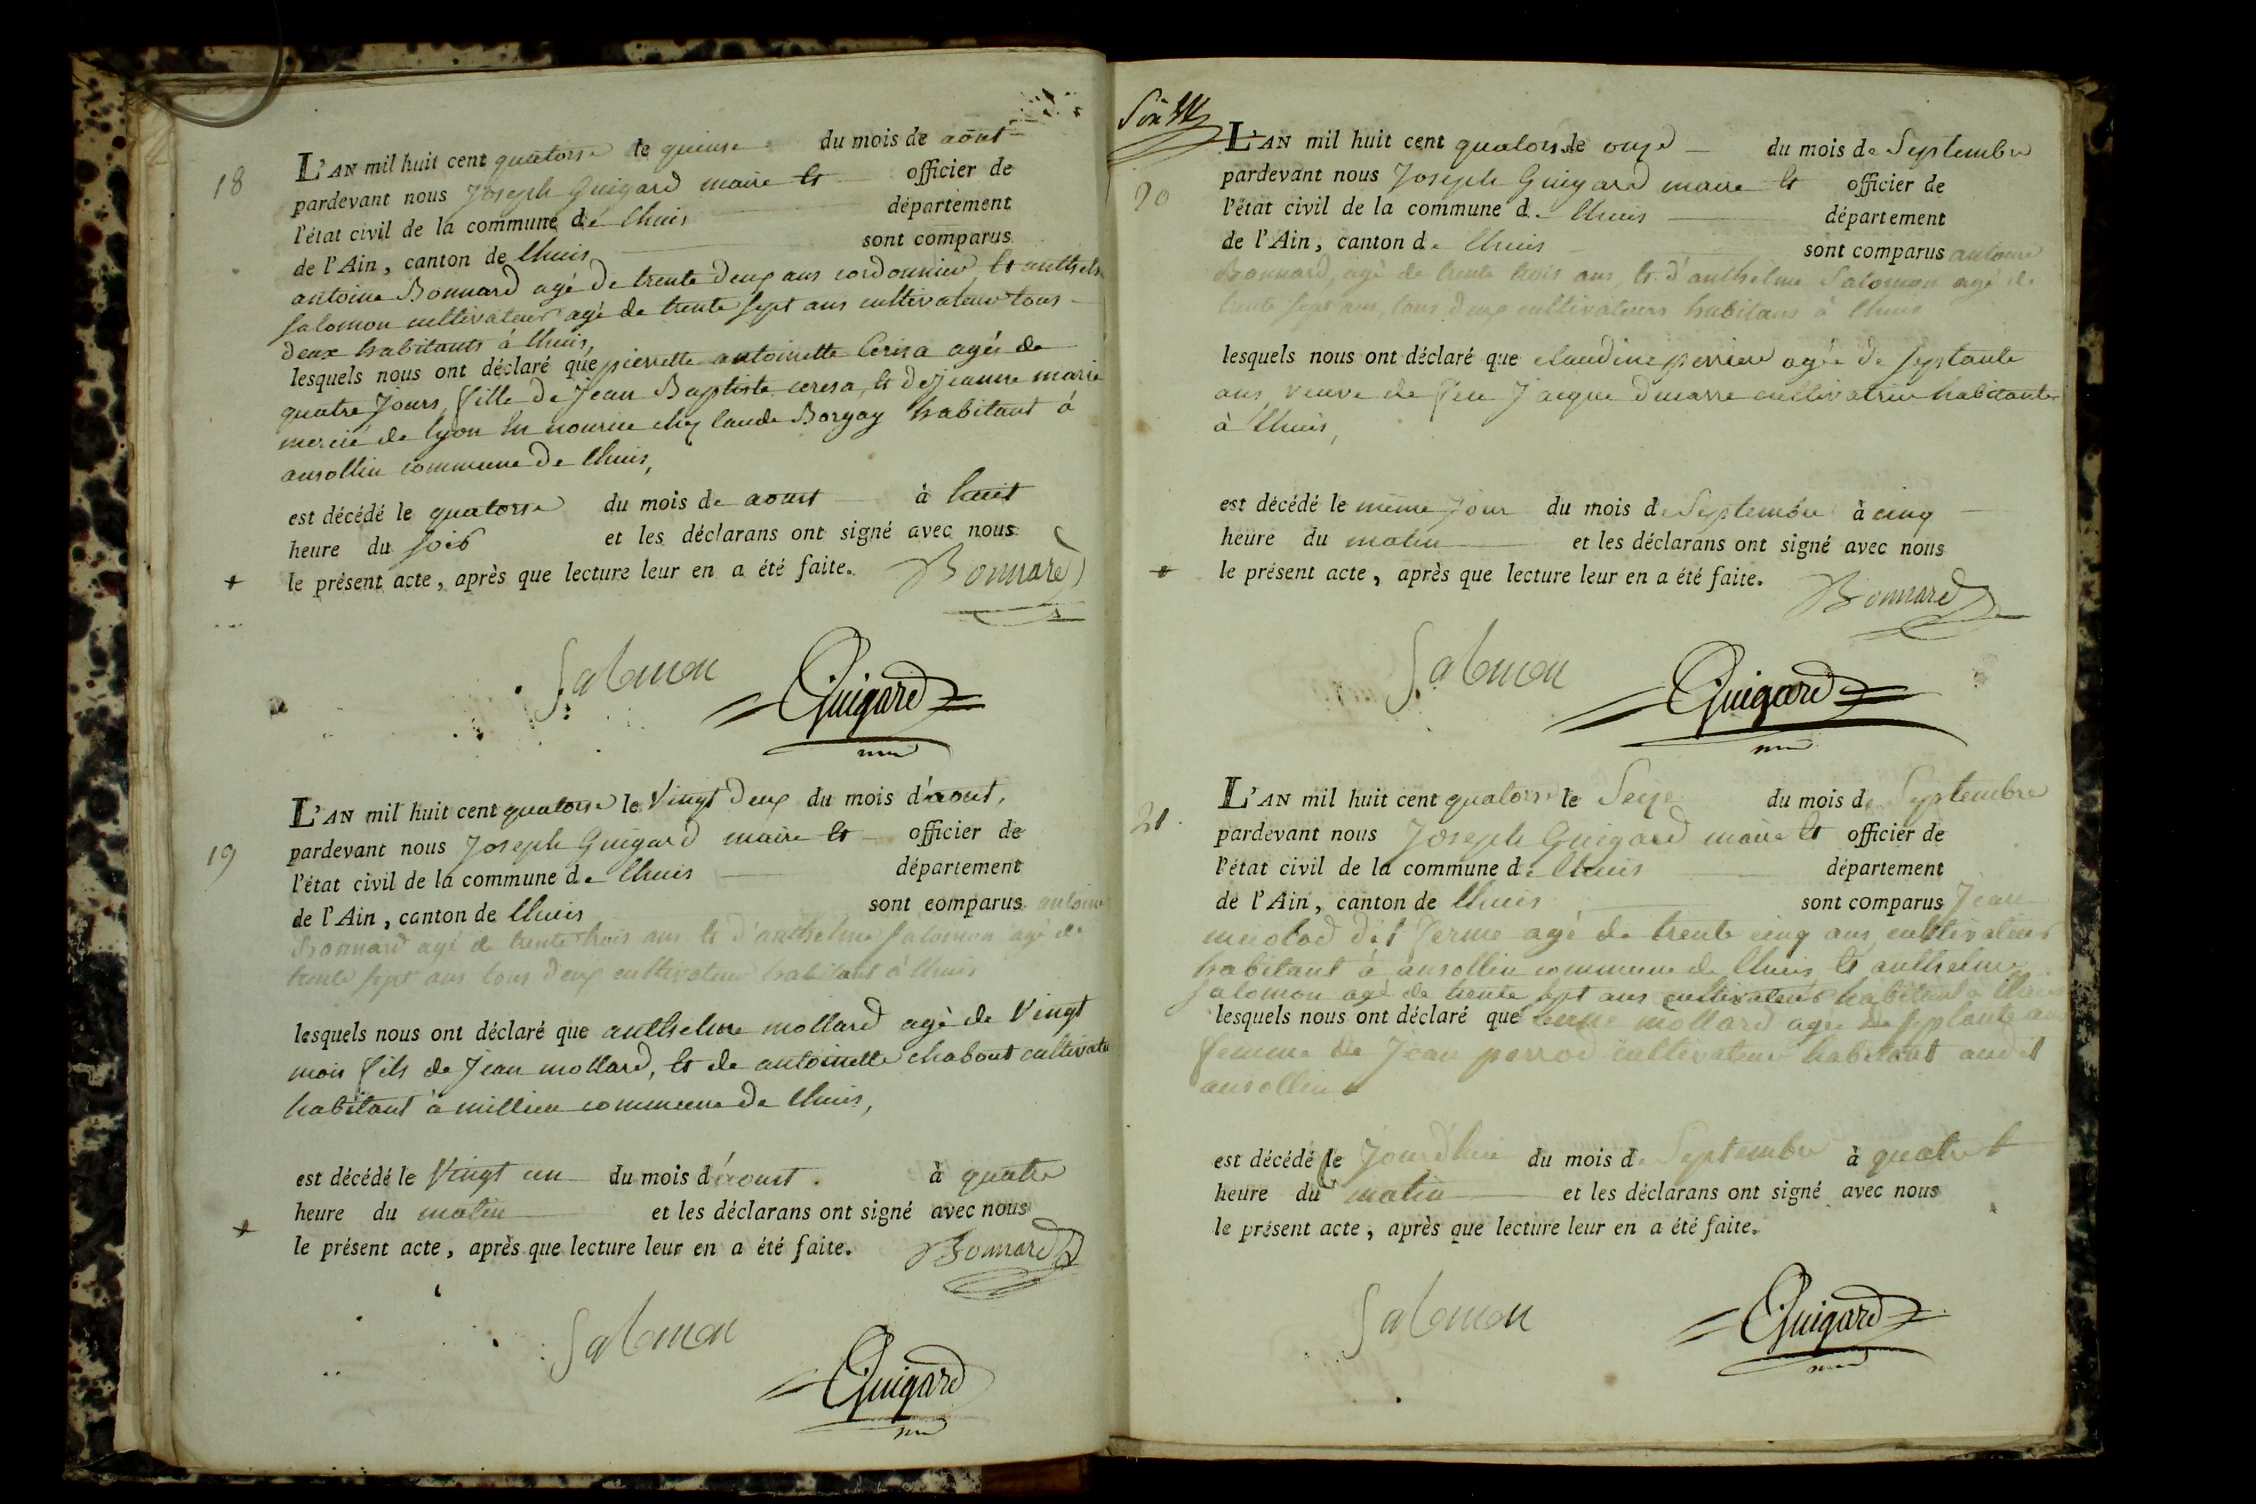 18
L'AN mil huit cent quatorse le quinse du mois de aout
pardevant nous Joseph Guigard maire et officier de
l'état civil de la commune de Lhuis département
de l'Ain, canton de Lhuis sont comparus
antoine Bonnard agé de trente deux ans cordonnier, et anthelme
Salomon cultivateur agé de trente sept ans cultivateur tous
deux habitants à Lhuis,
lesquels nous ont déclaré que pierrette antoinette Cerisa agés de
quatre Jours, fille de Jean Baptiste ceresa, et de jeanne marie
mercié de lyon en nourice chez laude Borgay habitant à
ansollin commune de Lhuis,
est décédé le quatorse du mois de aoust à huit
heure du soir et les déclarans ont signé avec nous
le présent acte, après que lecture leur en a été faite. Bonnard
Salomon Guigard
19
L'AN mil huit cent quatorse le Vingt deux du mois d'aout,
pardevant nous Joseph Guigard maire et officier de
l'état civil de la commune de Lhuis département
de l'Ain, canton de Lhuis sont comparus antoine
Bonnard agé de trente trois ans et d'anthelme Salomon agé de
trente sept ans tous deux cultivateur habitant à Lhuis
lesquels nous ont déclaré que anthelme mollard agé de Vingt
mois fils de Jean mollard, et de antoinette chabout cultivateur
habitant à millieu commune de Lhuis,
est décédé le Vingt un du mois d'aoust à quatre
heure du matin et les déclarans ont signé avec nous
le présent acte, après que lecture leur en a été faite. Bonnard
Salomon
Guigard
20
L'AN mil huit cent quatorse le onze du mois de Septembre
pardevant nous Joseph Guigard maire et officier de
l'état civil de la commune de Lhuis département
de l'Ain, canton de Lhuis sont comparus antoine
Bonnard, agé de trente trois ans, et d'anthelme Salomon agé de
trente sept ans, tous deux cultivateurs habitans à Lhuis
lesquels nous ont déclaré que claudine perrier agée de septante
ans, veuve de feu Jacque dumarre cultivatrice habitante
à Lhuis,
est décédé le meme jour du mois de Septembre à cinq
heure du matin et les déclarans ont signé avec nous
le présent acte, après que lecture leur en a été faite.
Bonnard
Salomon Guigard
21
L'AN mil huit cent quatorse le Seize du mois de Septembre
pardevant nous Joseph Guigard maire et officier de
l'état civil de la commune de Lhuis département
de l'Ain, canton de Lhuis sont comparus Jean
dit ferme agé de trente cinq ans, cultivateur
habitant à ansollin commune de Lhuis, et anthelme
Salomon agé de trente sept ans cultivateur habitant à Lhuis
lesquels nous ont déclaré que mollard agée de septante ans
femme de Jean perrod cultivateur habitant audit
ansollin
est décédé le Jourd'hui du mois de Septembre à quatre
heure du matin et les déclarans ont signé avec nous
le présent acte, après que lecture leur en a été faite.
Salomon Guigard